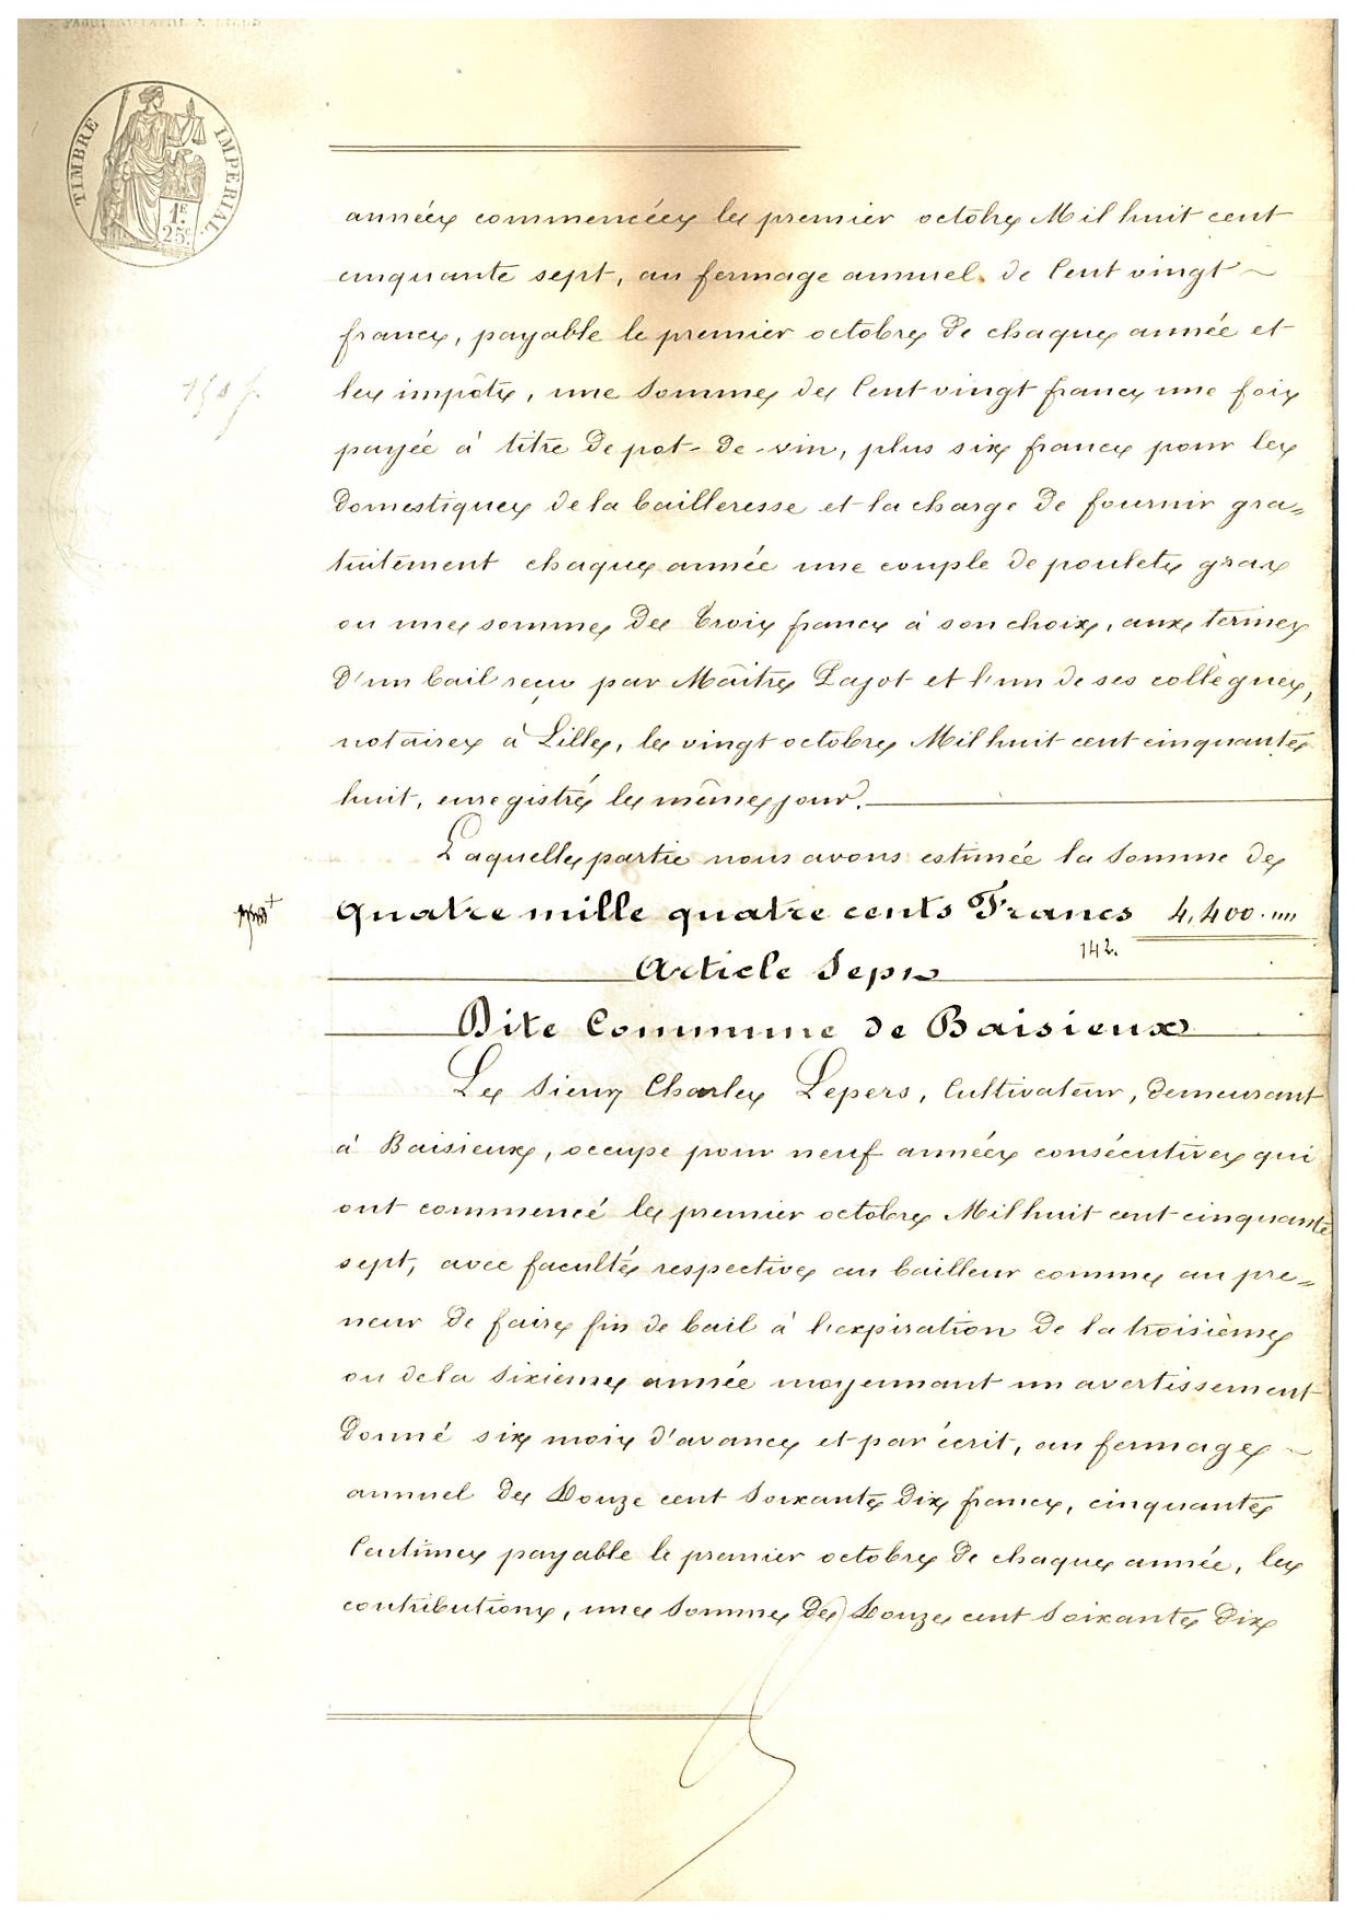 TIMBRE IMPERIAL
1F.
25c.
années commencées le premier octobre Mil huit cent
cinquante sept, au fermage annuel de Cent vingt
francs, payable le premier octobre de chaque année et
les impôts, une somme de Cent vingt francs une fois
payée à titre de pot-de-vin, plus six francs pour les
domestiques de la bailleresse et la charge de fournir gra=
tuitement chaque année une couple de poulets gras
ou une somme de Trois francs à son choix, aux termes
d'un bail reçu par Maître Pajot et l'un de ses collègues,
notaires à Lille, le vingt octobre Mil huit cent cinquante
huit, enregistré le même jour.
Laquelle partie nous avons estimée la somme de
Quatre mille quatre cents Francs 4,400. """
142.
Article Sept
Dite Commune de Baisieux
Le Sieur Charles Lepers, Cultivateur, demeurant
à Baisieux, occupe pour neuf années consécutives qui
ont commencé le premier octobre Mil huit cent cinquante
sept, avec faculté respective au bailleur comme au pre=
neur de faire fin de bail à l'expiration de la troisième
ou de la sixième année moyennant un avertissement
donné six mois d'avance et par écrit, au fermage
annuel de Douze cent soixante dix francs, cinquante
Centimes payable le premier octobre de chaque année, les
contributions, une somme de Douze cent soixante dix